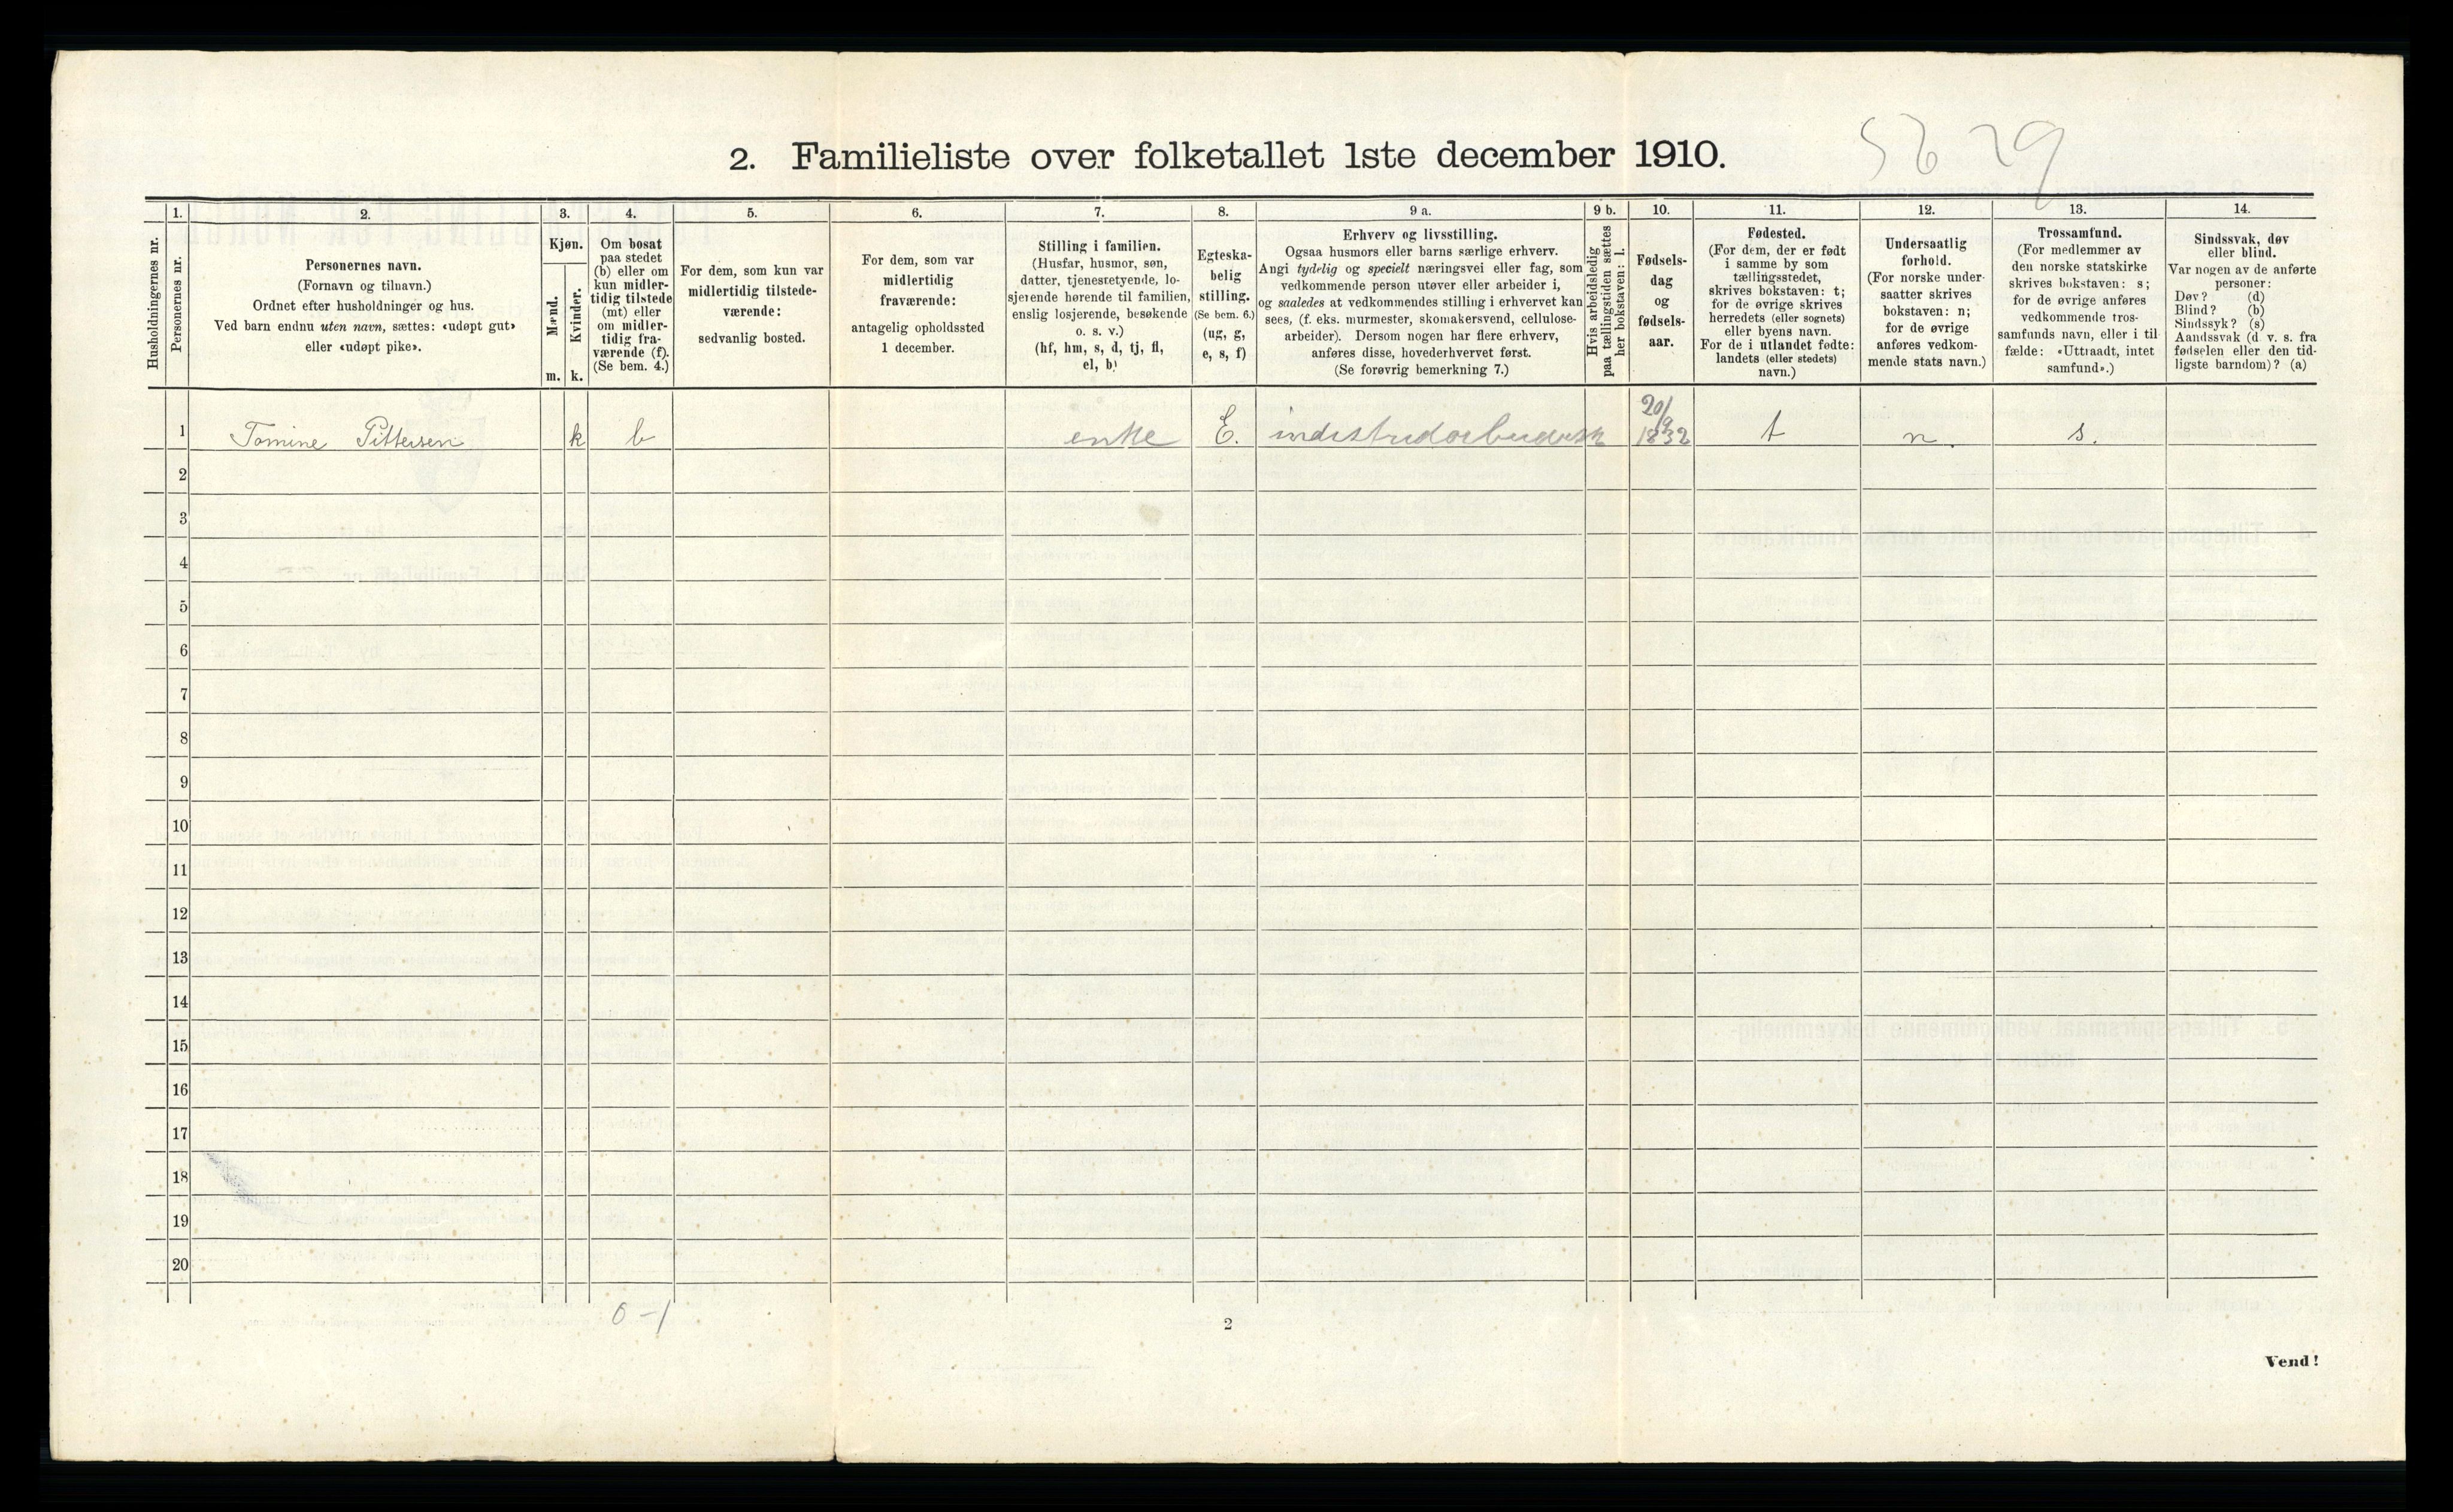 2. Familieliste over folketallet 1ste december 1910.
5629
1.
2.
3.
4.
5.
6.
7.
8.
9 a.
9 b.
10.
11.
12.
13.
14.
Husholdningernes nr.
Personernes nr.
Personernes navn.
(Fornavn og tilnavn.)
Ordnet efter husholdninger og hus.
Ved barn endnu uten navn, sættes: «udøpt gut»
eller «udøpt pike».
Kjøn.
Mænd.
Kvinder.
m.
k.
Om bosat
paa stedet
(b) eller om
kun midler-
tidig tilstede
(mt) eller
om midler-
tidig fra-
værende (f).
(Se bem. 4.)
For dem, som kun var
midlertidig tilstede-
værende:
sedvanlig bosted.
For dem, som var
midlertidig
fraværende:
antagelig opholdssted
1 december.
Stilling i familien.
(Husfar, husmor, søn,
datter, tjenestetyende, lo-
sjerende hørende til familien,
enslig losjerende, besøkende
o. s. v.)
(hf, hm, s, d, tj, fl,
el, b)
Egteska-
belig
stilling.
(Se bem. 6.)
(ug, g,
e, s, f)
Erhverv og livsstilling.
Ogsaa husmors eller barns særlige erhverv.
Angi tydelig og specielt næringsvei eller fag, som
vedkommende person utøver eller arbeider i,
og saaledes at vedkommendes stilling i erhvervet kan
sees, (f. eks. murmester, skomakersvend, cellulose-
arbeider). Dersom nogen har flere erhverv,
anføres disse, hovederhvervet først.
(Se forøvrig bemerkning 7.)
Hvis arbeidsledig
paa tællingstiden sættes
her bokstaven: l.
Fødsels-
dag
og
fødsels-
aar.
Fødested.
(For dem, der er født
i samme by som
tællingsstedet,
skrives bokstaven: t;
for de øvrige skrives
herredets (eller sognets)
eller byens navn.
For de i utlandet fødte:
landets (eller stedets)
navn.)
Undersaatlig
forhold.
(For norske under-
saatter skrives
bokstaven: n;
for de øvrige
anføres vedkom-
mende stats navn.)
Trossamfund.
(For medlemmer av
den norske statskirke
skrives bokstaven: s;
for de øvrige anføres
vedkommende tros-
samfunds navn, eller i til-
fælde: «Uttraadt, intet
samfund».)
Sindssvak, døv
eller blind.
Var nogen av de anførte
personer:
Døv? (d)
Blind? (b)
Sindssyk? (s)
Aandssvak (d. v. s. fra
fødselen eller den tid-
ligste barndom)? (a)
1 Tomine Pittersen k b enke E. indistriarbeidersk 20/9 1832 t n. s.
2
3
4
5
6
7
8
9
10
11
12
13
14
15
16
17
18
19
20
0 - 1
2
Vend!